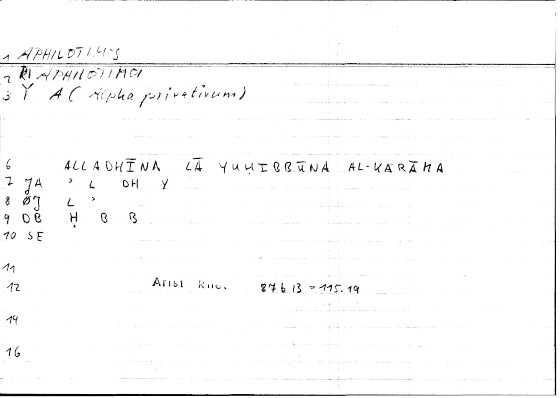 1 APHILOTIMOS
2 PI APHILOTIMOI
3 Y A ( Alpha privativum)
6 ALLADHĪNA LĀ YUḤIBBŪNA AL-KARĀMA
7 JA ʾ L DH Y
8 ØJ L ʾ
9 DB Ḥ B B
10 SE
11
12 Arist Rhet. 87b13 = 115.19
14
16